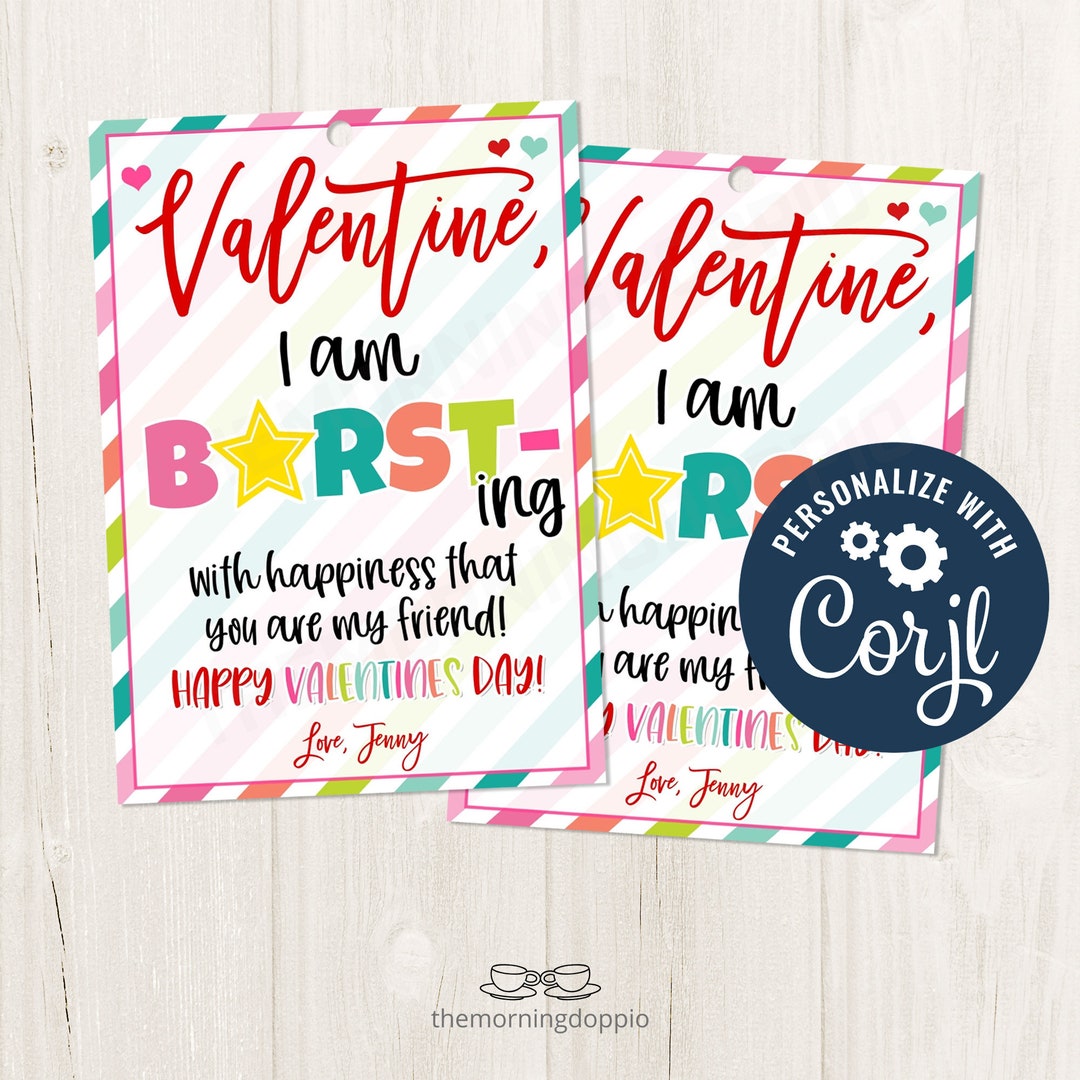 Valentine,
I am
B★RST-
ing
with happiness that
you are my friend!
HAPPY VALENTINES DAY!
Love, Jenny
Valentine,
I am
★RS
happin
are my
VALENTINES
Love, Jenny
PERSONALIZE WITH
Corjl
themorningdoppio